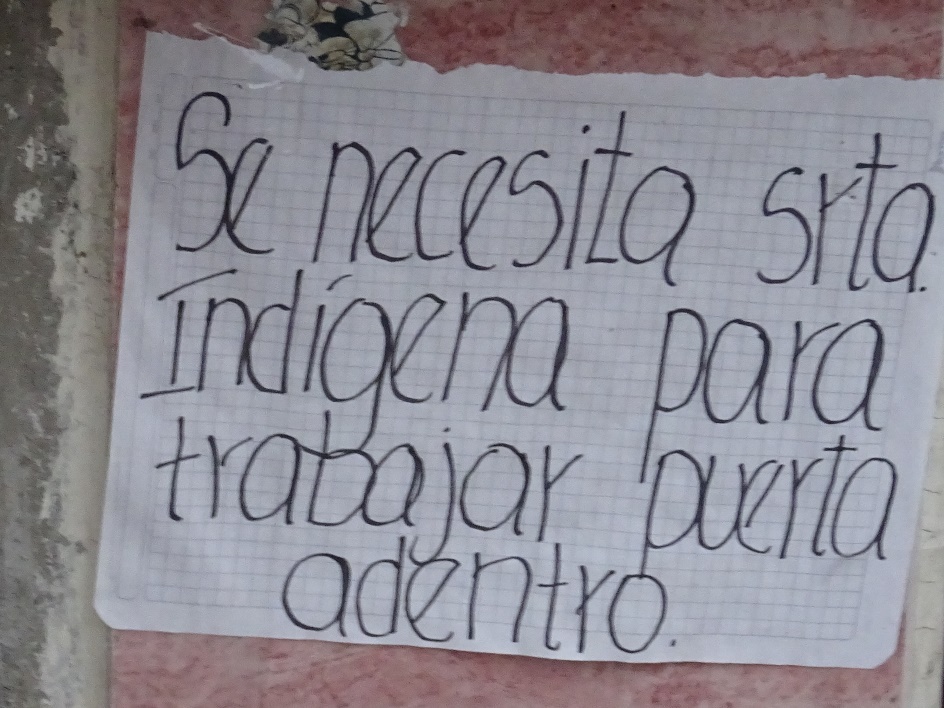 Se necesita srta.
Indígena para
trabajar puerta
adentro.